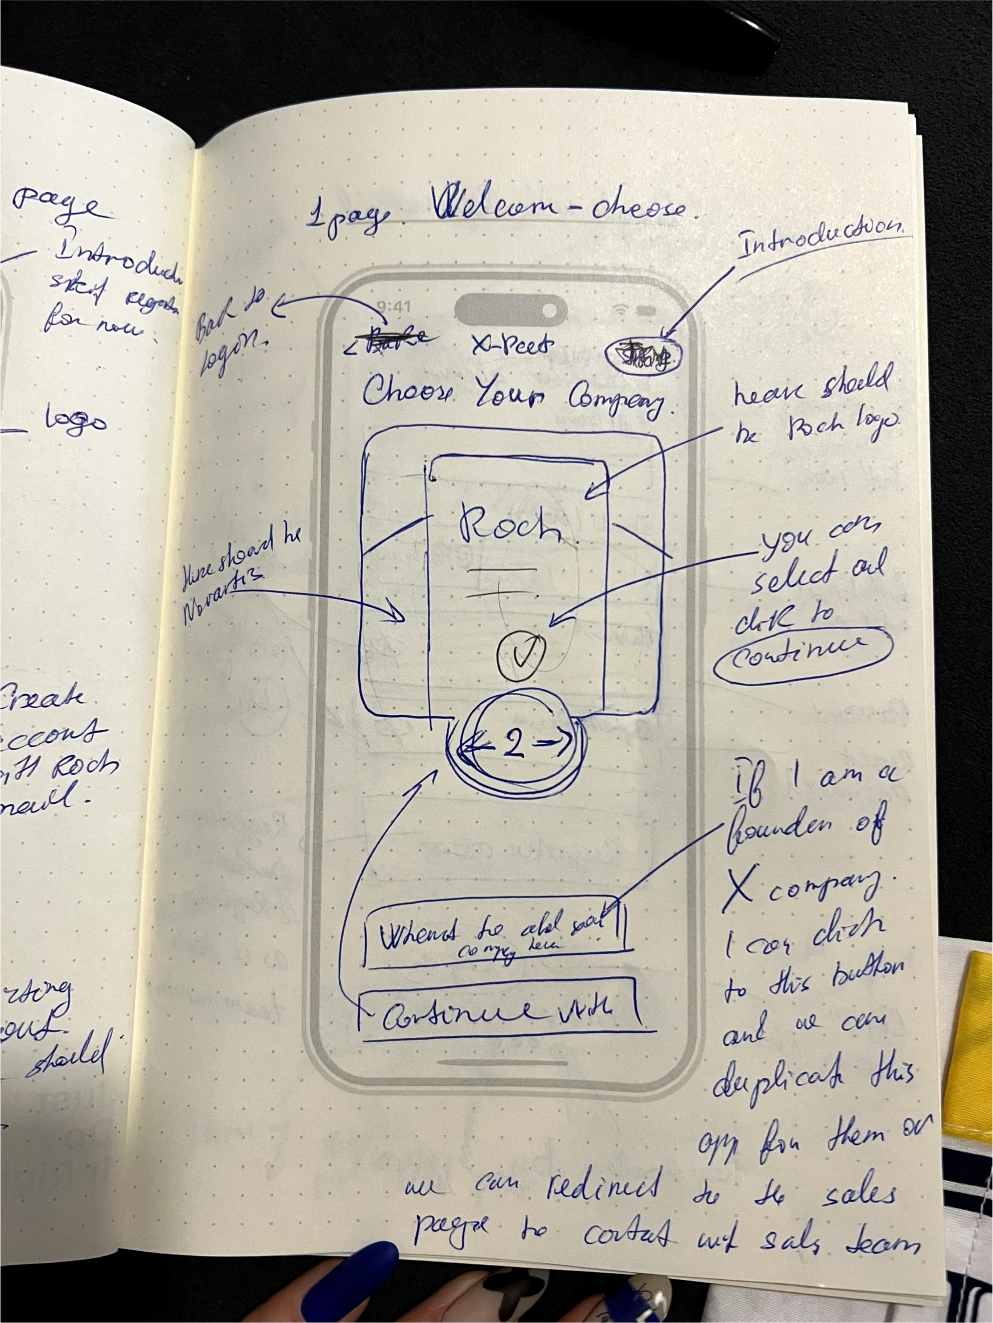 page
Introducti
for now.
logo
Create
ccount
Roch
should
1 page. Welcom - choose.
Introduction.
Back to
login.
9:41
<
X-Peet
Choose Your Company.
heare should
be Roch logo
Roch.
Hire shoud be
Novartis
you can
select and
click to
Continue
← 2 →
If I am a
founder of
X company.
I can click
to this button
and we can
duplicate this
app for them or
we can redirect to the sales
page to contact wit sals team
Whent to add
compny
Continue With